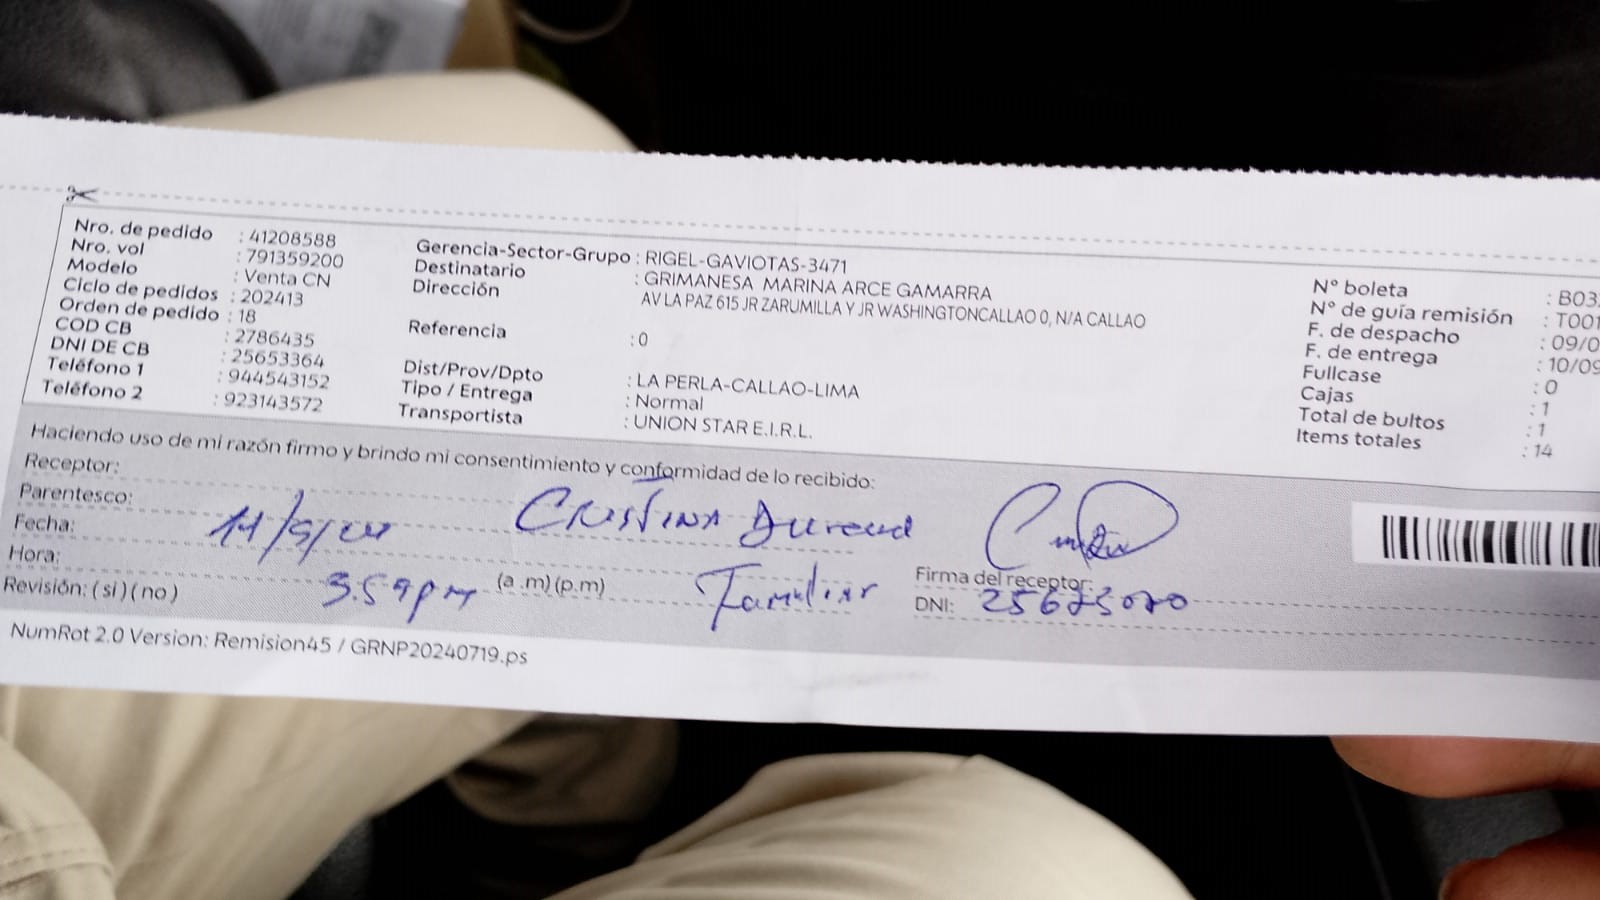 Nro. de pedido : 41208588
Nro. vol : 791359200
Modelo : Venta CN
Ciclo de pedidos : 202413
Orden de pedido : 18
COD CB : 2786435
DNI DE CB : 25653364
Teléfono 1 : 944543152
Teléfono 2 : 923143572
Gerencia-Sector-Grupo : RIGEL-GAVIOTAS-3471
Destinatario : GRIMANESA MARINA ARCE GAMARRA
Dirección AV LA PAZ 615 JR ZARUMILLA Y JR WASHINGTONCALLAO 0, N/A CALLAO
Referencia : 0
Dist/Prov/Dpto : LA PERLA-CALLAO-LIMA
Tipo / Entrega : Normal
Transportista : UNION STAR E.I.R.L.
N° boleta : B03
N° de guía remisión : T001
F. de despacho : 09/0
F. de entrega : 10/09
Fullcase : 0
Cajas : 1
Total de bultos : 1
Items totales : 14
Haciendo uso de mi razón firmo y brindo mi consentimiento y conformidad de lo recibido:
Receptor:
Parentesco: Cristina
Fecha: 11/9/24
Hora: 3.59pm (a.m)(p.m) Familiar
Firma del receptor:
Revisión: ( si ) ( no )
DNI:
NumRot 2.0 Version: Remision45 / GRNP20240719.ps